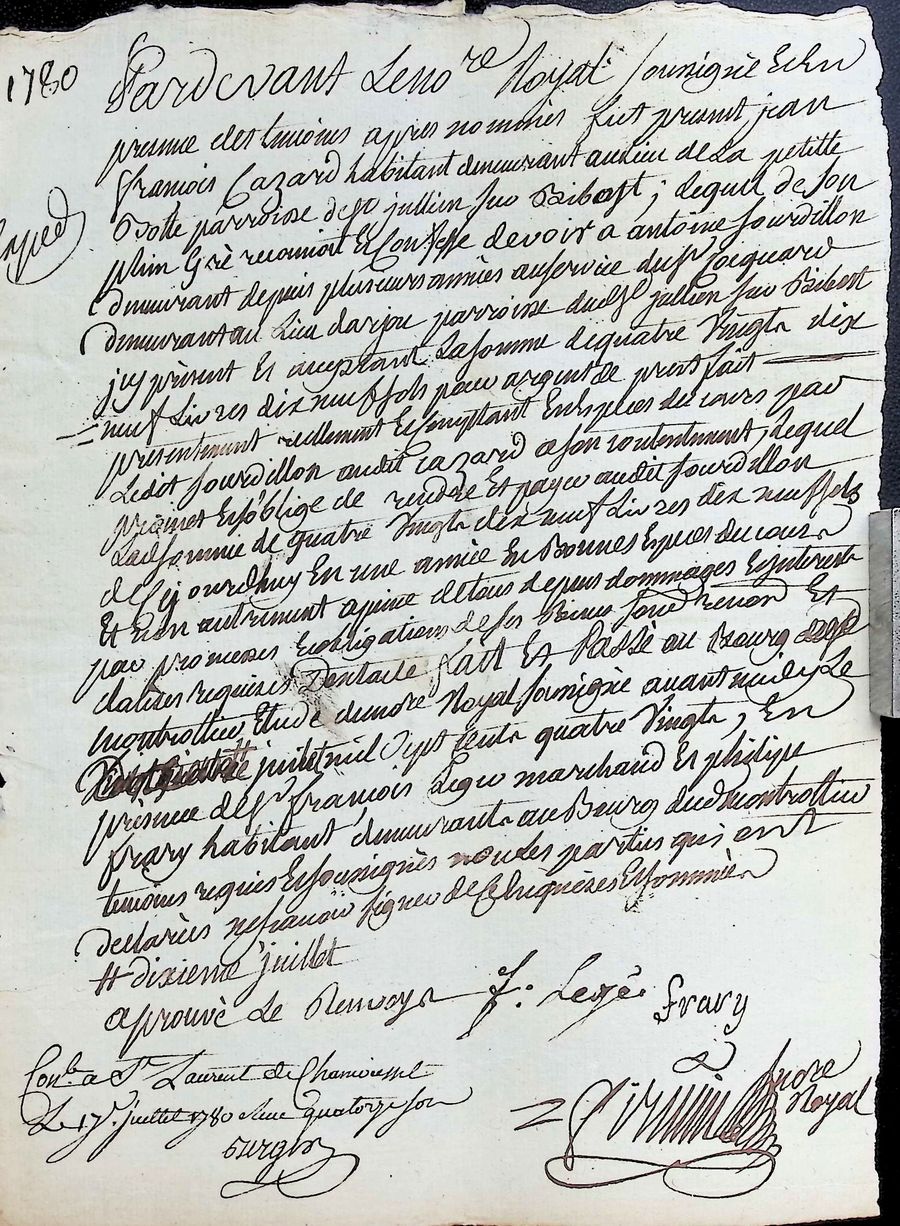 1780
Pardevant Le no.re Royal soussigné Et En
presence des temoins apres nommés fut present jean
francois Cazard habitant demeurant au lieu de La petitte
Botte parroisse de St jullien sur Bibost; lequel de son
plein Gré reconnoit et Confesse devoir a antoine sourdillon
demeurant depuis plusieurs années au service du Sr Cocquard
demeurant au Lieu darjou parroisse dud St jullien sur Bibost
jcy présent Et acceptant La somme de quatre Vingts dix
neuf Livres dix neuf sols pour argent de prest fait
presentement réellement Et Comptant En Especes du cours par
Ledit sourdillon audit cazard a son contentement, lequel
promet Et s'oblige de rendre Et payer audit sourdillon
Lad somme de quatre Vingts dix neuf Livres dix neuf sols
de Cejourdhuy En une année En Bonnes Especes du cours
Et non autrement a peine de tous depens dommages Et jnterests
par promesses Et obligations de ses Biens soud renon Et
clauses requises Dont acte fait Et Passé au Bourg de
montrottier Etude dunore Royal soussigné avant midy Le
juillet mil Sept Cents quatre Vingts, En
présence de Sr françois Legé marchand Et philipe
frary habitant demeurants au Bourg dud montrottier
temoins requis Et soussignés non Les parties qui ont
declarées ne sçavoir signer de Ce Enquises Et sommées
# dixieme juillet
aprouvé Le Renvoy
f: Legé
frary
nore
Royal
Con.lé a St Laurent de Chamousset
Le 17e juillet 1780 Reçu quatorze sols